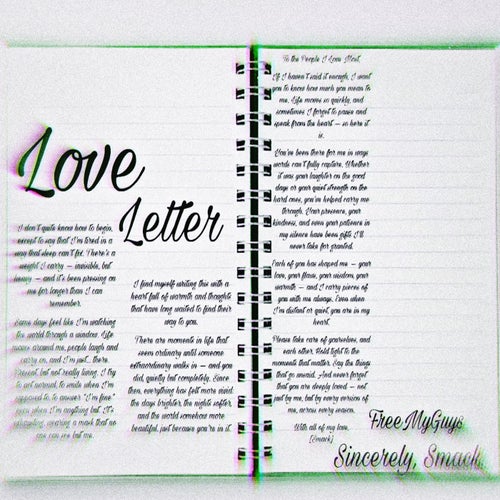 Love
Letter
I don't quite know how to begin,
except to say that I'm tired in a
way that sleep can't fix. There's a
weight I carry — invisible, but
heavy — and it's been pressing on
me for longer than I can
remember.
Some days feel like I'm watching
the world through a window. Life
goes around me, people laugh and
carry on, and I'm just... there.
Present, but not really living. I try
to act normal, to smile when I'm
supposed to, to answer "I'm fine"
even when I'm anything but. It's
exhausting, wearing a mask that no
one can see but me.
I find myself writing this with a
heart full of warmth and thoughts
that have long waited to find their
way to you.
There are moments in life that
seem ordinary until someone
extraordinary walks in — and you
did, quietly but completely. Since
then, everything has felt more vivid:
the days brighter, the nights softer,
and the world somehow more
beautiful, just because you're in it.
To the People I Love Most,
If I haven't said it enough, I want
you to know how much you mean to
me. Life moves so quickly, and
sometimes I forget to pause and
speak from the heart — so here it
is.
You've been there for me in ways
words can't fully capture. Whether
it was your laughter on the good
days or your quiet strength on the
hard ones, you've helped carry me
through. Your presence, your
kindness, and even your patience in
my silence have been gifts I'll
never take for granted.
Each of you has shaped me — your
love, your flaws, your wisdom, your
warmth — and I carry pieces of
you with me always. Even when
I'm distant or quiet, you are in my
heart.
Please take care of yourselves, and
each other. Hold tight to the
moments that matter. Say the things
that go unsaid. And never forget
that you are deeply loved — not
just by me, but by every version of
me, across every season.
With all of my love,
[Smack]
FreeMyGuys
Sincerely, Smack